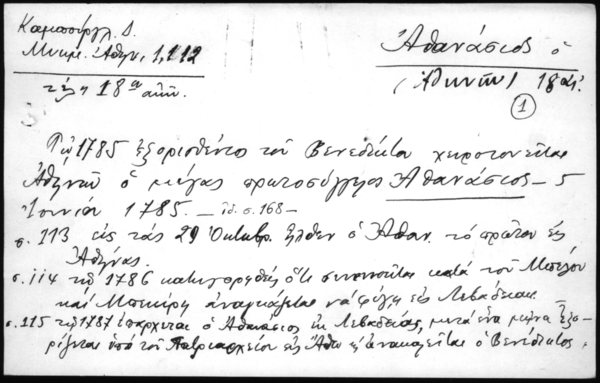 Καμπούργλ. Δ.
Μνημ. Ἀθην. 1, 112
τέλη 18ου αἰῶν.
Ἀθανάσιος ὁ
(Ἀθηνῶν) 18 αἰ.
1
Τῷ 1785 ἐξορισθέντος τοῦ Βενεδίκτου χειροτονεῖται
Ἀθηνῶν ὁ μέγας πρωτοσύγγελος Ἀθανάσιος – 5
Ἰουνίου 1785. – ἰδ. σ. 168 –
σ. 113 εἰς τὰς 29 Ὀκτωβρ. ἦλθεν ὁ Ἀθαν. τὸ πρῶτον εἰς
Ἀθήνας.
σ. 114 τῷ 1786 κατηγορηθεὶς ὅτι συνωμοτεῖται κατὰ τοῦ
καὶ Μπεκίρη ἀναγκάζεται νὰ φύγῃ εἰς Λεβάδειαν.
σ. 115 τῷ 1787 ἐπέρχεται ὁ Ἀθανάσιος ἐκ Λεβαδείας, μετὰ ἕνα μῆνα ἐξο-
ρίζεται ὑπὸ τοῦ Πατριαρχείου εἰς Ἄθω κ' ἀνακαλεῖται ὁ Βενέδικτος.